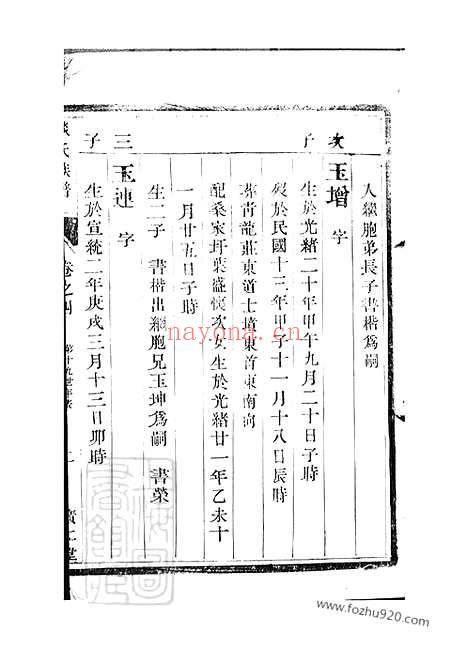 人繼胞弟長子書楷為嗣
次子
玉增 字
生於光緒二十年甲午九月二十日子時
歿於民國十三年甲子十一月十八日辰時
葬青龍莊東道士墳東首東南向
配桑家圩葉盛懷次女生於光緒廿一年乙未十
一月廿五日子時
生二子 書楷出繼胞兄玉坤為嗣 書榮
三子
玉連 字
生於宣統二年庚戌三月十三日卯時
氏族譜
卷之四
二
廣仁堂
nayona.cn
www.fozhu920.com